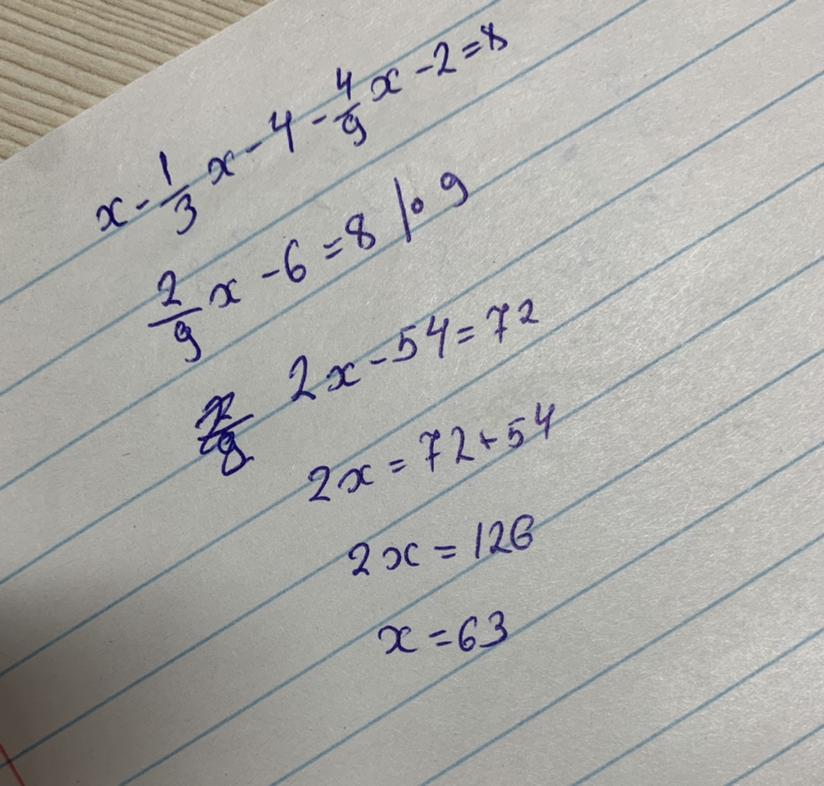 x - 1/3 x - 4 - 4/9 x - 2 = 8
2/9 x - 6 = 8 |· 9
2x - 54 = 72
2x = 72 + 54
2x = 126
x = 63